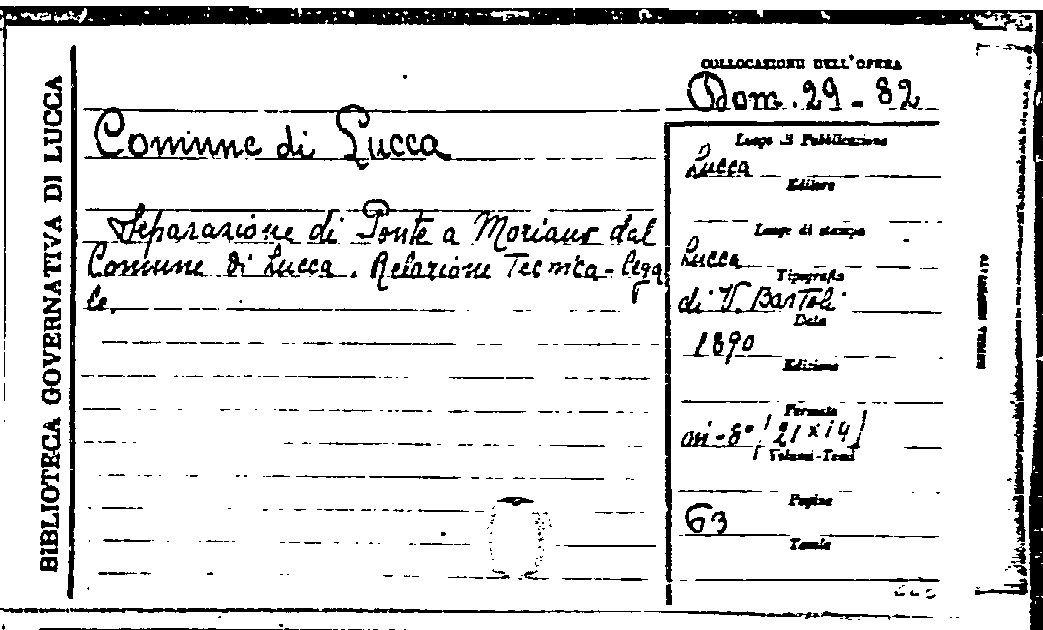 BIBLIOTECA GOVERNATIVA DI LUCCA
COLLOCAZIONE DELL'OPERA
Dom. 29 - 82
Comune di Lucca
Separazione di Ponte a Moriano dal
Comune di Lucca. Relazione Tecnica-lega
le.
Luogo di Pubblicazione
Lucca
Editore
Luogo di stampa
Lucca
Tipografia
di V. Bartoli
Data
1890
Edizione
Formato
in-8° (21x14)
Volumi-Tomi
Pagine
63
Tavole